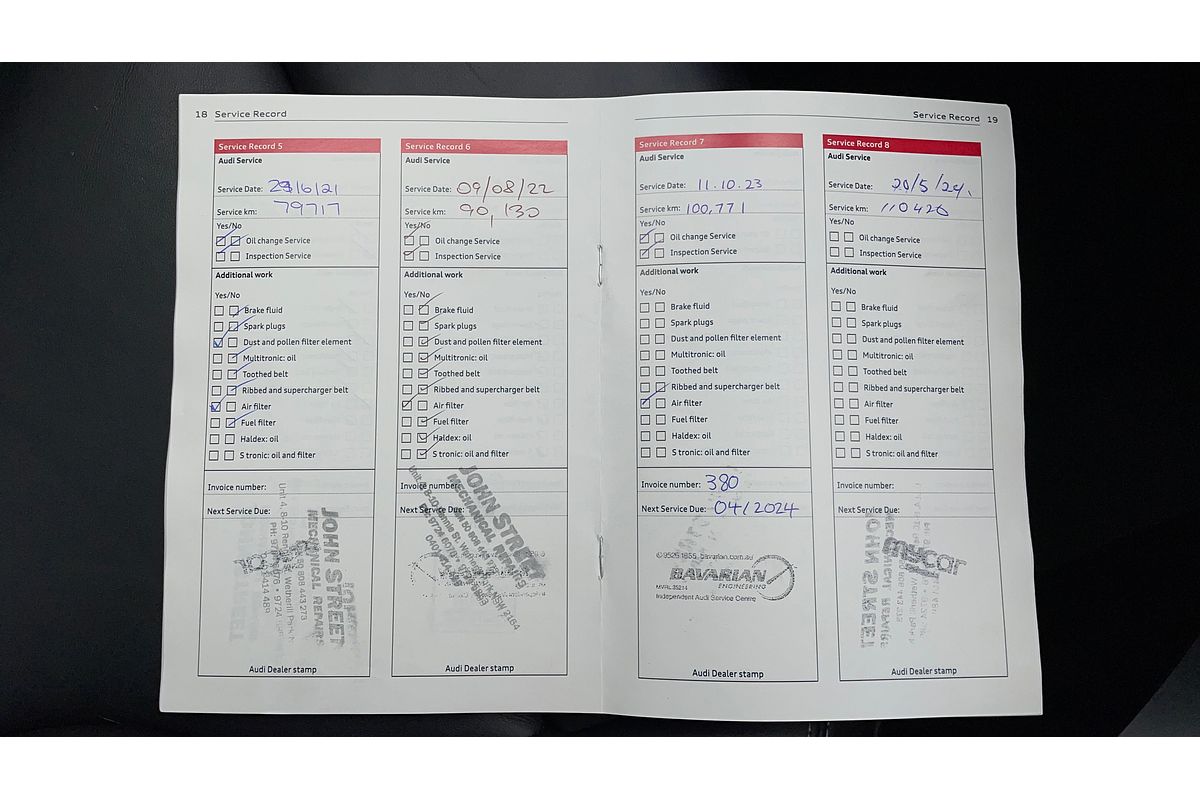 18 Service Record
Service Record 5
Audi Service
Service Date:
Service km: 79717
Yes/No
Oil change Service
Inspection Service
Additional work
Yes/No
Brake fluid
Spark plugs
Dust and pollen filter element
Multitronic: oil
Toothed belt
Ribbed and supercharger belt
Air filter
Fuel filter
Haldex: oil
S tronic: oil and filter
Invoice number:
Next Service Due:
JOHN STREET
MECHANICAL REPAIRS
Audi Dealer stamp
Service Record 6
Audi Service
Service Date: 09/08/22
Service km: 90,130
Yes/No
Oil change Service
Inspection Service
Additional work
Yes/No
Brake fluid
Spark plugs
Dust and pollen filter element
Multitronic: oil
Toothed belt
Ribbed and supercharger belt
Air filter
Fuel filter
Haldex: oil
S tronic: oil and filter
Invoice number:
Next Service Due:
JOHN STREET
MECHANICAL REPAIRS
Audi Dealer stamp
Service Record 19
Service Record 7
Audi Service
Service Date: 11.10.23
Service km: 100,771
Yes/No
Oil change Service
Inspection Service
Additional work
Yes/No
Brake fluid
Spark plugs
Dust and pollen filter element
Multitronic: oil
Toothed belt
Ribbed and supercharger belt
Air filter
Fuel filter
Haldex: oil
S tronic: oil and filter
Invoice number: 380
Next Service Due: 04/2024
bavarian.com.au
BAVARIAN
ENGINEERING
Independent Audi Service Centre
Audi Dealer stamp
Service Record 8
Audi Service
Service Date: 20/5/24.
Service km: 110426
Yes/No
Oil change Service
Inspection Service
Additional work
Yes/No
Brake fluid
Spark plugs
Dust and pollen filter element
Multitronic: oil
Toothed belt
Ribbed and supercharger belt
Air filter
Fuel filter
Haldex: oil
S tronic: oil and filter
Invoice number:
Next Service Due:
mycar
Audi Dealer stamp